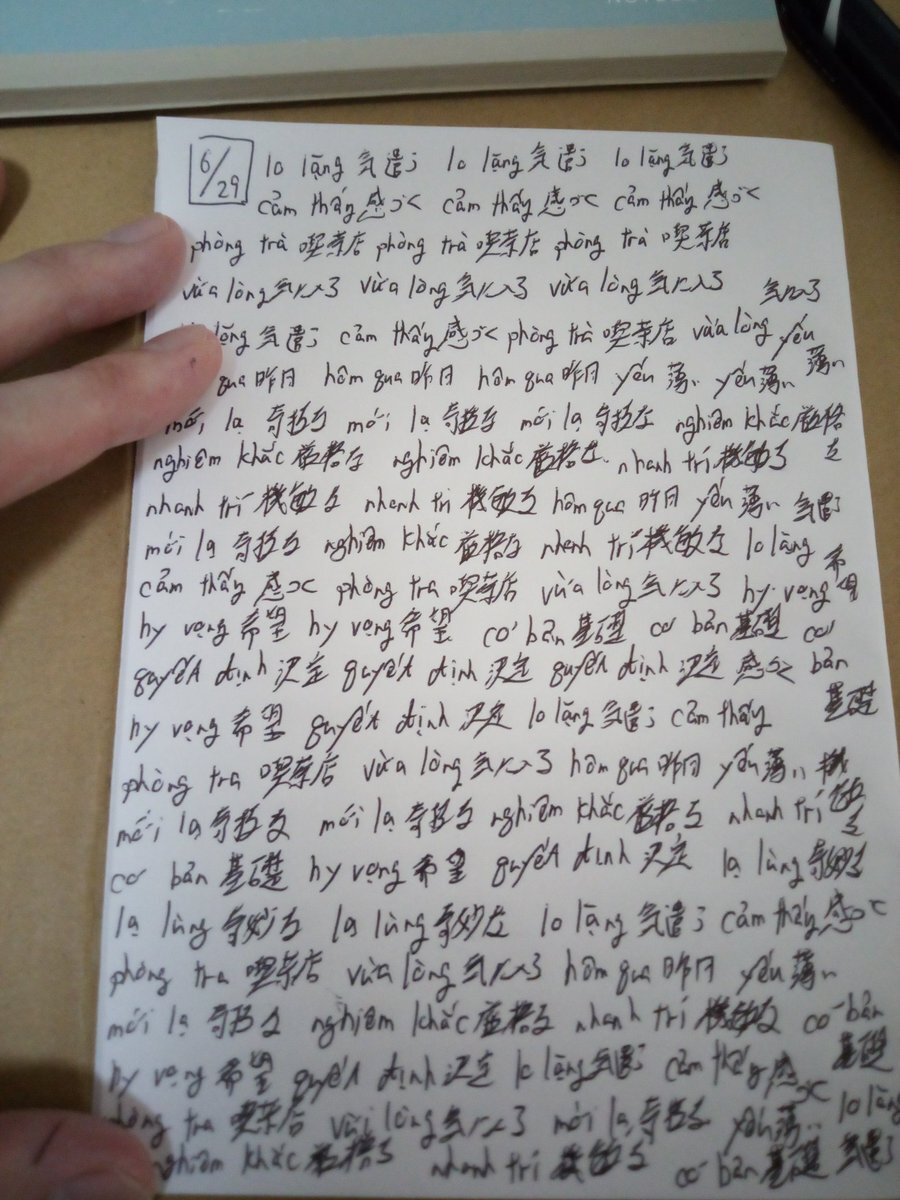 6/29 lo lặng 気遣う lo lặng 気遣う lo lặng 気遣う
cảm thấy 感づく cảm thấy 感づく cảm thấy 感づく
phòng trà 喫茶店 phòng trà 喫茶店 phòng trà 喫茶店
vừa lòng 気に入る vừa lòng 気に入る vừa lòng 気に入る 気に入る
lặng 気遣う cảm thấy 感づく phòng trà 喫茶店 vừa lòng yếu
qua 昨日 hôm qua 昨日 hôm qua 昨日 yếu 薄い yếu 薄い 薄い
mới lạ 奇抜な mới lạ 奇抜な mới lạ 奇抜な nghiêm khắc 厳格
nghiêm khắc 厳格な nghiêm khắc 厳格な nhanh trí 機敏な な
nhanh trí 機敏な nhanh trí 機敏な hôm qua 昨日 yếu 薄い 気遣う
mới lạ 奇抜な nghiêm khắc 厳格な nhanh trí 機敏な lo lặng 希
cảm thấy 感づく phòng tra 喫茶店 vừa lòng 気に入る hy vọng 望
hy vọng 希望 hy vọng 希望 cơ bản 基礎 cơ bản 基礎 cơ
quyết định 決定 quyết định 決定 quyết định 決定 感づく bản
hy vọng 希望 quyết định 決定 lo lặng 気遣う cảm thấy 基礎
phòng tra 喫茶店 vừa lòng 気に入る hôm qua 昨日 yếu 薄い 機
mới lạ 奇抜な mới lạ 奇抜な nghiêm khắc 厳格な nhanh trí 敏な
cơ bản 基礎 hy vọng 希望 quyết định 決定 lạ lùng 奇妙な
lạ lùng 奇妙な lạ lùng 奇妙な lo lặng 気遣う cảm thấy 感づく
phòng tra 喫茶店 vừa lòng 気に入る hôm qua 昨日 yếu 薄い
mới lạ 奇抜な nghiêm khắc 厳格な nhanh trí 機敏な cơ bản
hy vọng 希望 quyết định 決定 lo lặng 気遣う cảm thấy 感づく 基礎
phòng tra 喫茶店 vừa lòng 気に入る mới lạ 奇抜な yếu 薄い lo lặng
nghiêm khắc 厳格な nhanh trí 機敏な cơ bản 基礎 気遣う